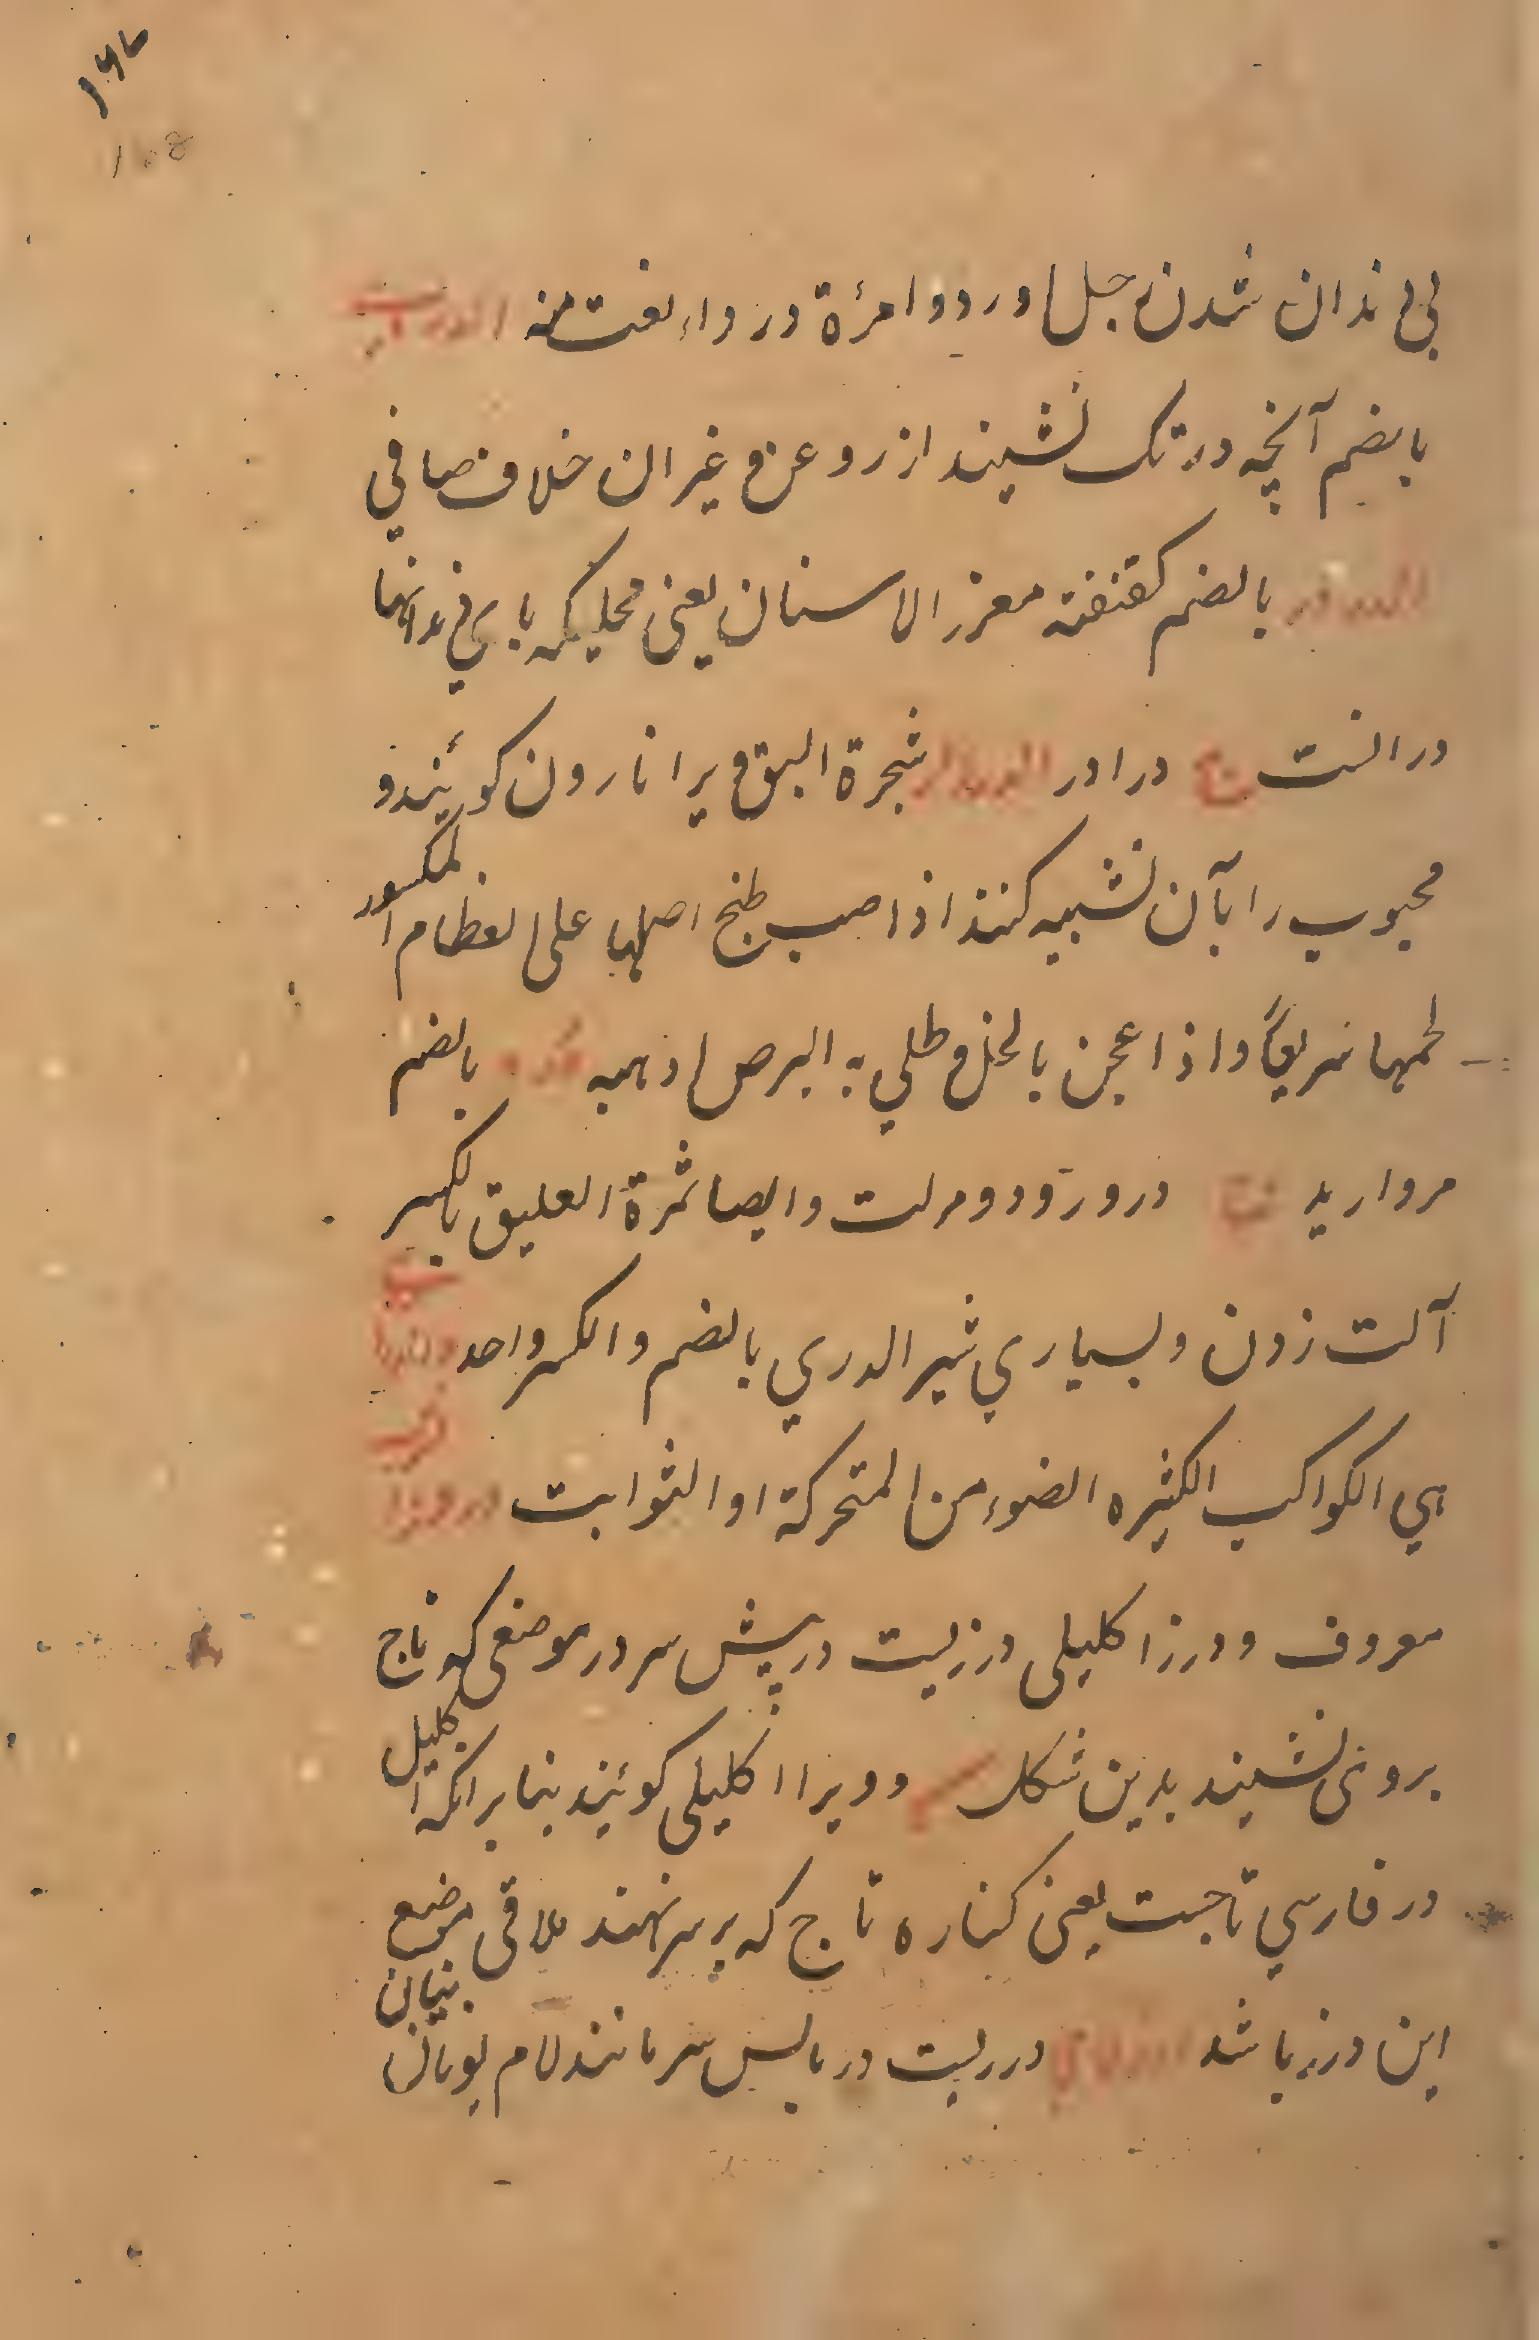 ۱۹۷
168
بی دندان شدن رجل ادرد وامرأة درداء نعت منه
بالضم آنچه در تک نشیند از روغن و غیر ان خلاف صافي
الدردر بالضم کقنفته مغرز الاسنان یعنی محلیکه بای دندانها
در انست ج درادر الدردار شجرة البق ویرا نارون کویند و
محبوب را بآن تشبیه کنند اذا صب طبخ اصلها علی العظام المکسور
لحمها سریعاً واذا عجن بالخل وطلي به البرص اذهبه درة بالضم
مروارید ج در ودرر ودرات وایضا ثمرة العلیق بالکسر
آلت زدن وبسیاري شیر الدري بالضم والکسر واحد
هي الکواکب الکثیره الضوء من المتحرکة او الثوابت درز
معروف ودرز اکلیلی درزیست در پیش سر در موضعی که تاج
بر وی نشیند بدین شکل و ویرا اکلیلی کویند بنابر انکه اکلیل
در فارسي تاجست یعنی کناره تاج که بر سر نهند ملاقی موضع
این درز باشد درزیست در پس سر مانند لام یونان